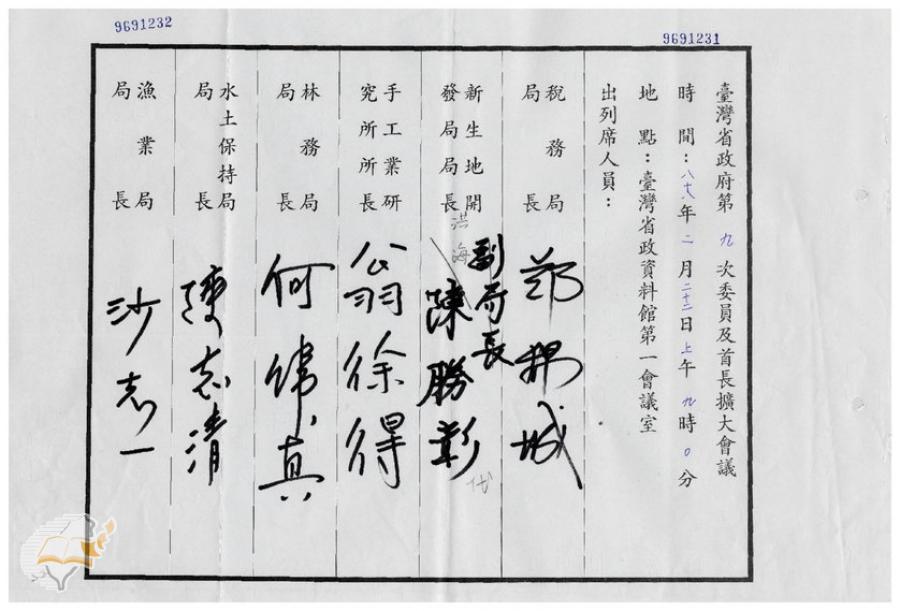 9691232
9691231
臺灣省政府第九次委員及首長擴大會議
時間:八十八年二月二十二日上午九時0分
地點:臺灣省政資料館第一會議室
出列席人員:
稅務局局長
鄭
城
新生地開發局局長
洪海
副局長
陳勝彰
代
手工業研究所所長
翁徐得
林務局局長
何偉真
水土保持局局長
陳志清
漁業局局長
沙志一